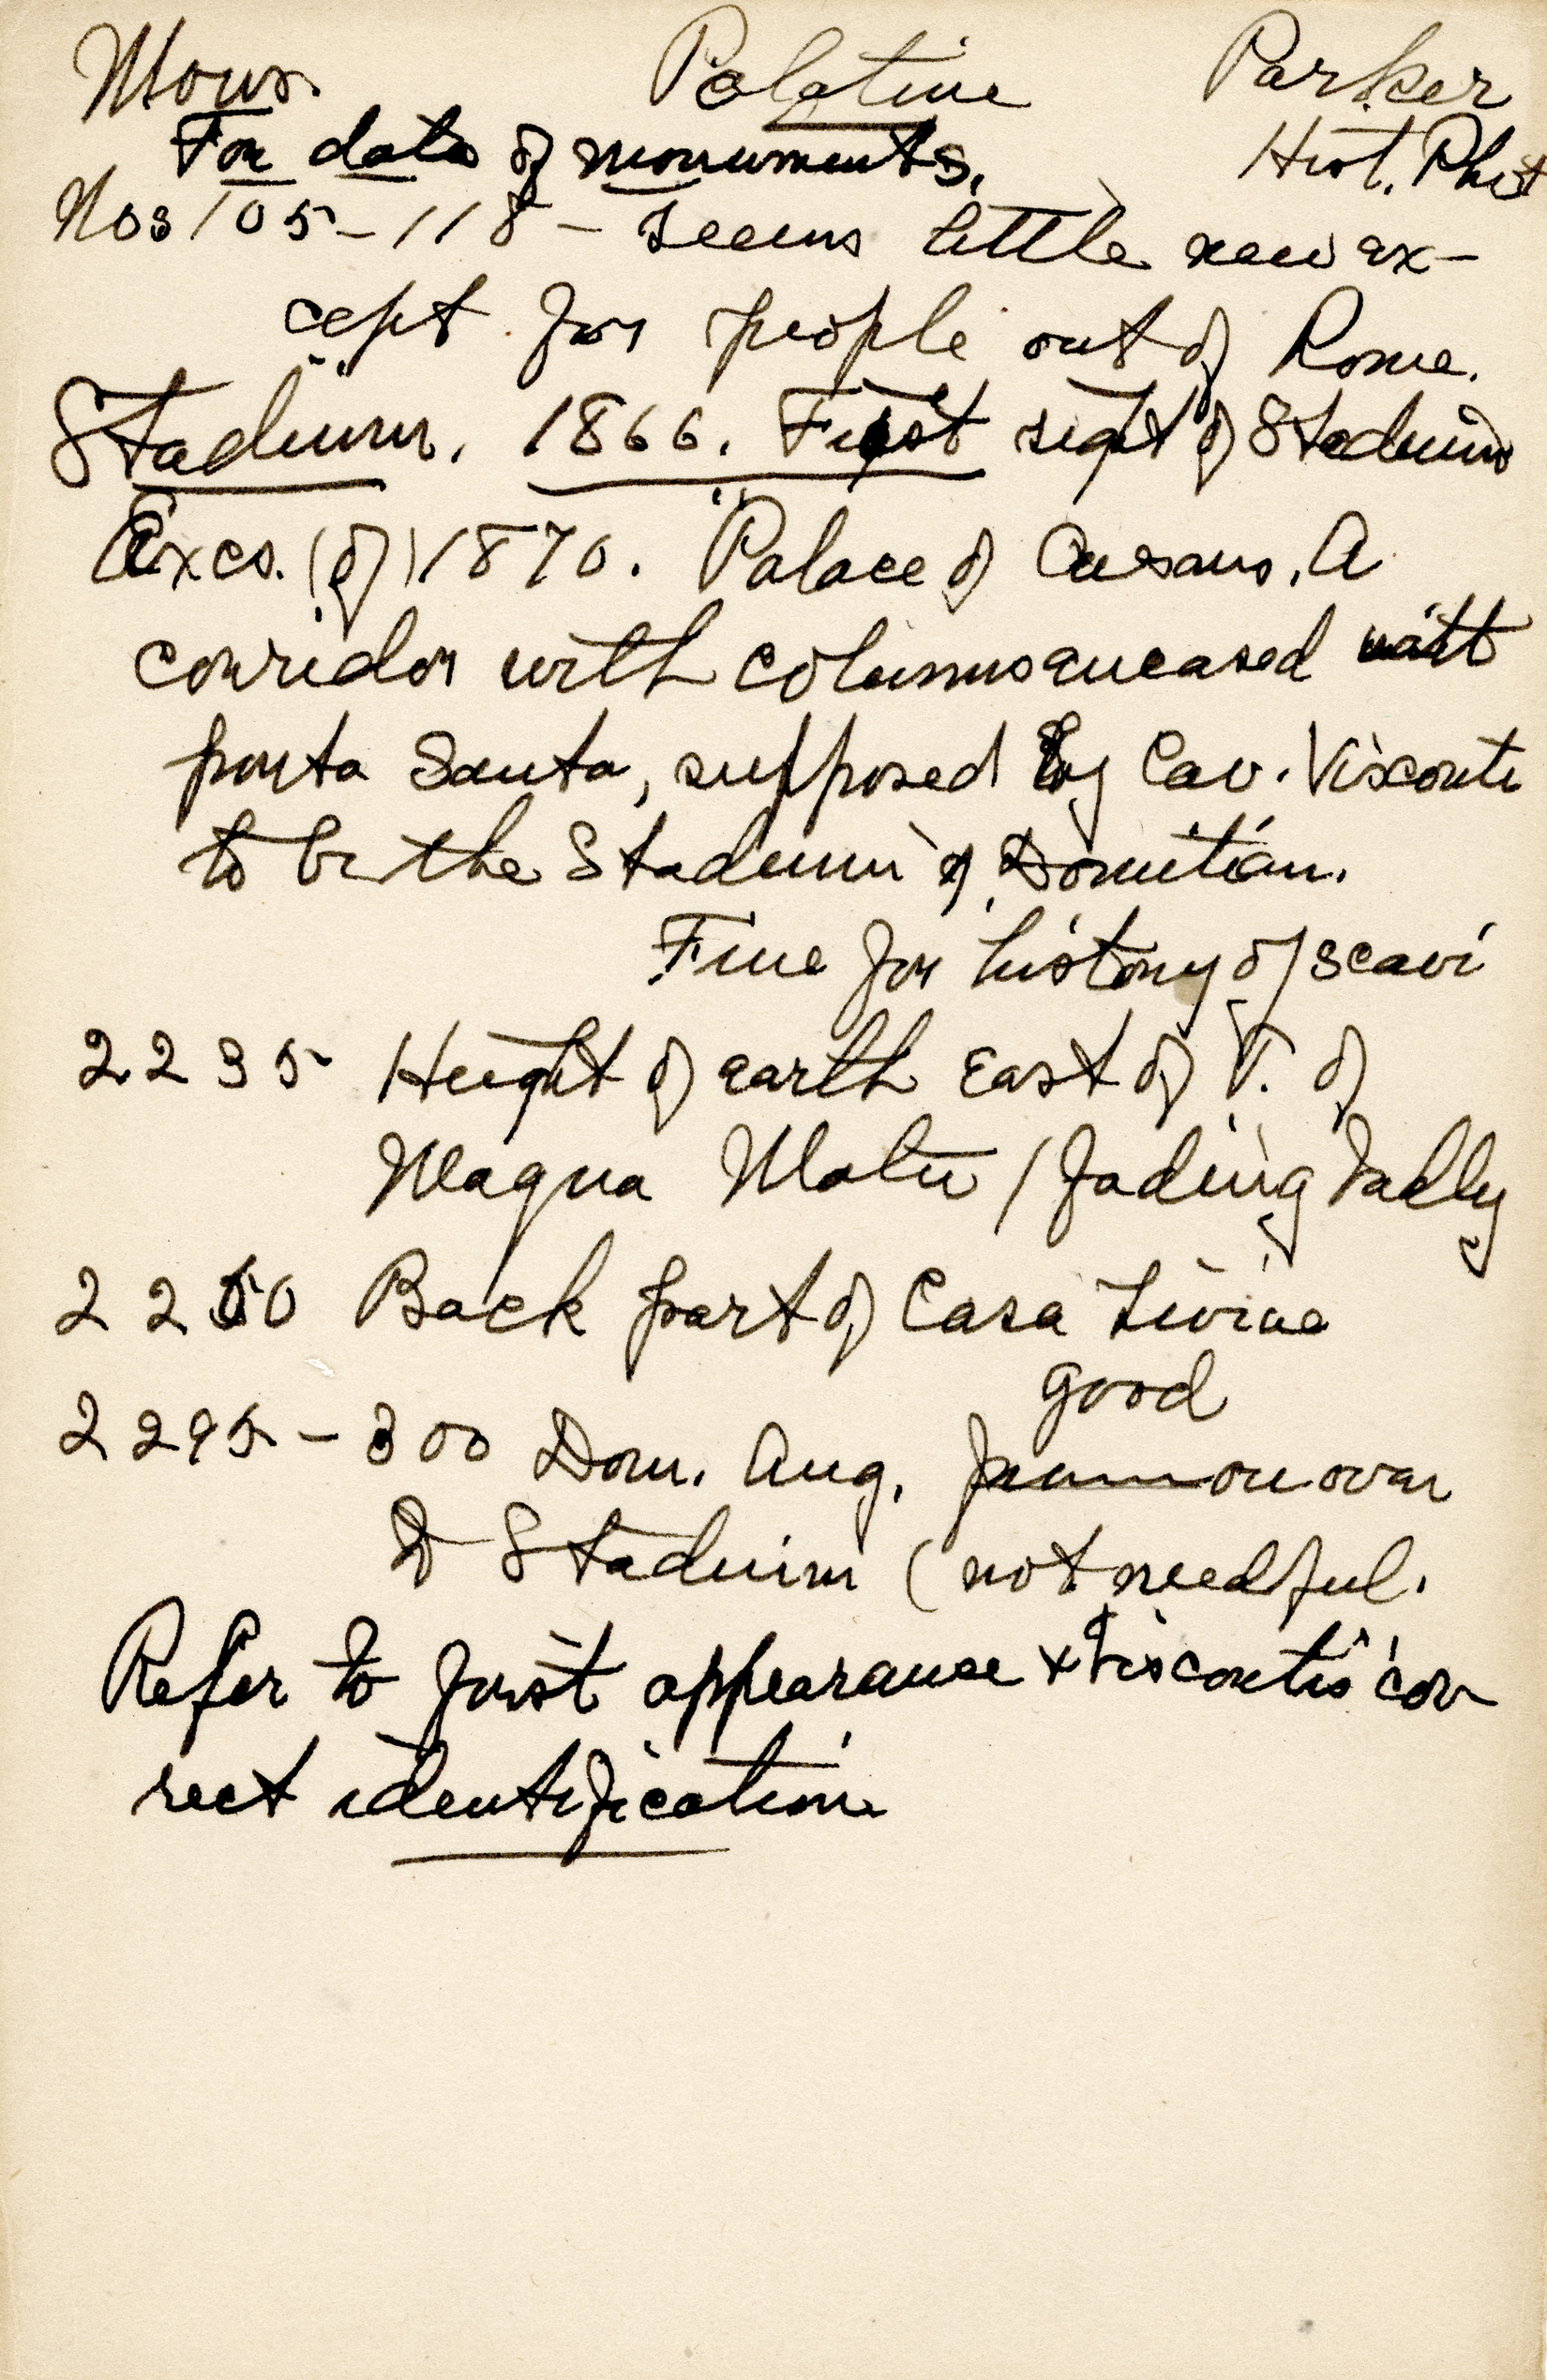 Mons. Palatine Parker
For date of monuments. Hist. Phot
Nos 105-118 - Seems little new ex-
cept for people out of Rome.
Stadium. 1866. First sight of Stadium
Excs. (of) 1870. Palace of Caesars. A
corridor with columns encased with
porta Santa, supposed by Cav. Visconti
to be the Stadium of Domitian.
Fine for history of scavi
2235 Height of earth East of T. of
Magna Mater / fading badly
2250 Back part of Casa Liviae
good
2295-300 Dom. Aug. from over
Stadium (not needful.
Refer to first appearance + Visconti's cor
rect identification